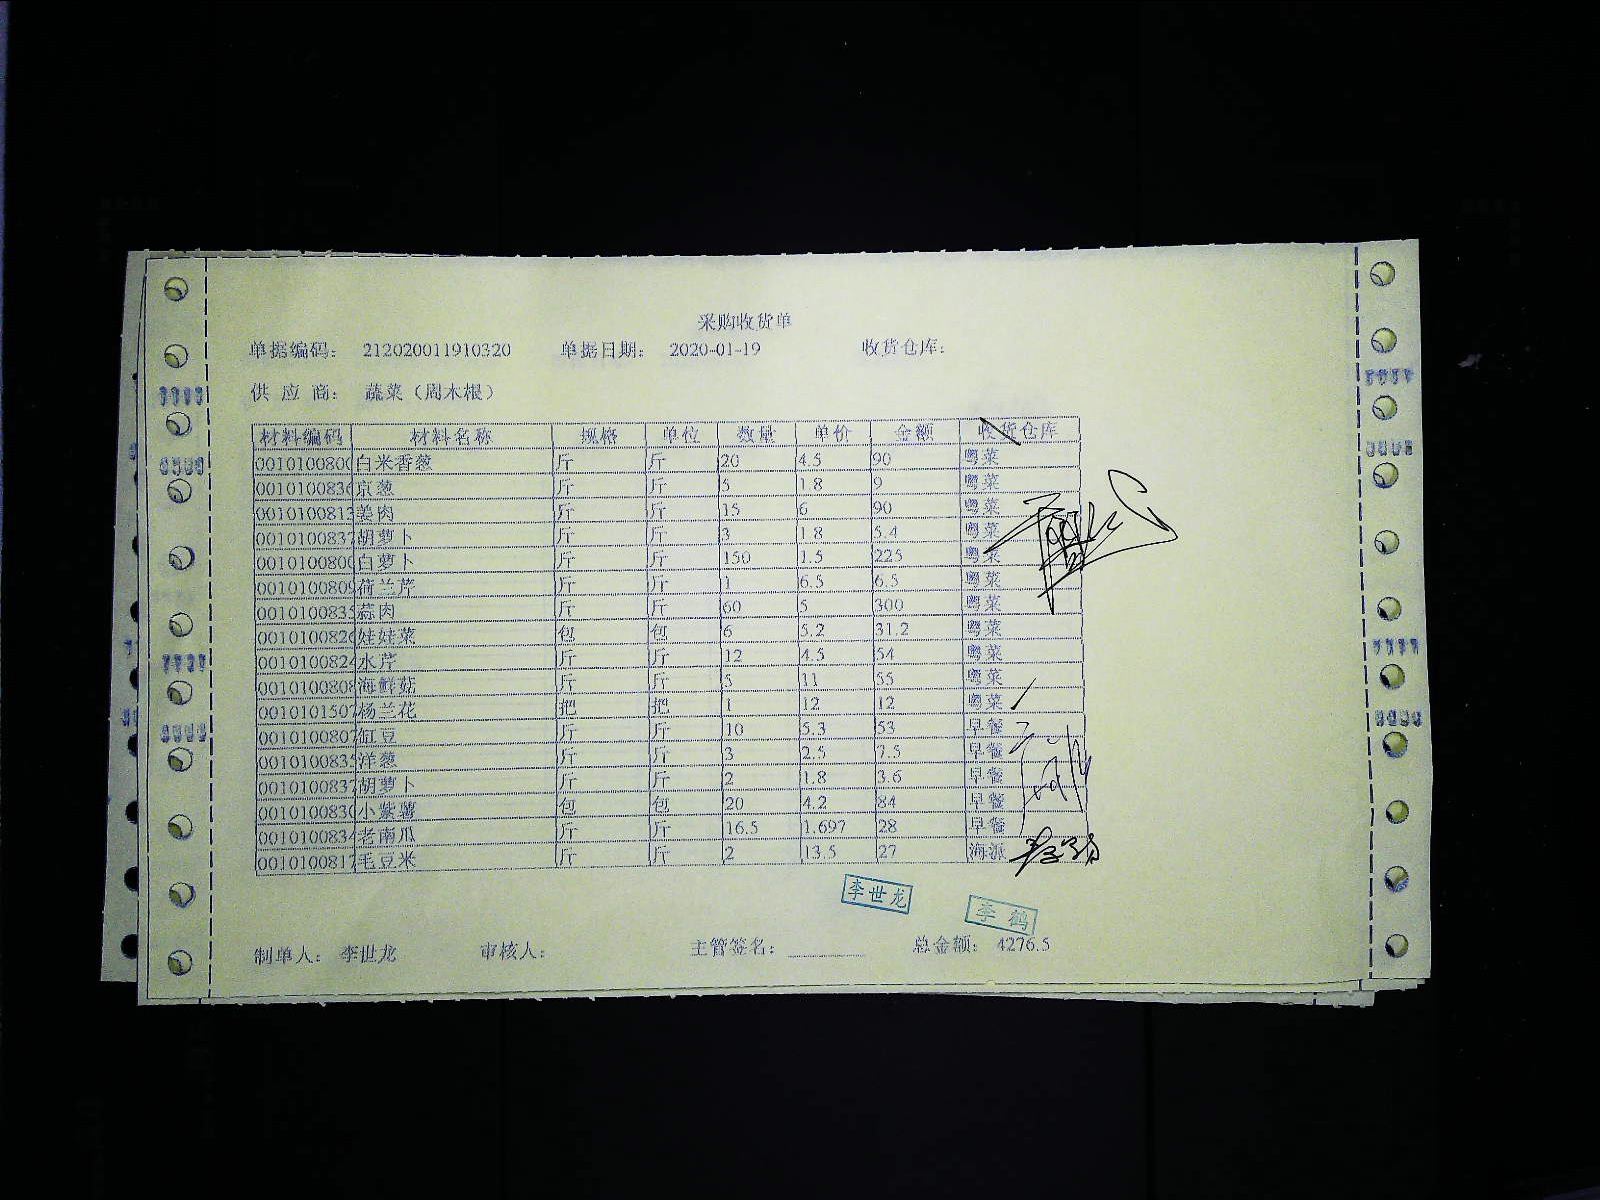 采购收货单
单据编码： 212020011910320 单据日期： 2020-01-19 收货仓库：
供 应 商： 蔬菜（周木根）
材料编码 材料名称 规格 单位 数量 单价 金额 收货仓库
0010100800 白米香葱 斤 斤 20 4.5 90 粤菜
0010100836 京葱 斤 斤 5 1.8 9 粤菜
0010100813 姜肉 斤 斤 15 6 90 粤菜
0010100837 胡萝卜 斤 斤 3 1.8 5.4 粤菜
0010100800 白萝卜 斤 斤 150 1.5 225 粤菜
0010100809 荷兰芹 斤 斤 1 6.5 6.5 粤菜
0010100835 蒜肉 斤 斤 60 5 300 粤菜
0010100826 娃娃菜 包 包 6 5.2 31.2 粤菜
0010100824 水芹 斤 斤 12 4.5 54 粤菜
0010100808 海鲜菇 斤 斤 5 11 55 粤菜
0010101507 杨兰花 把 把 1 12 12 粤菜
0010100807 缸豆 斤 斤 10 5.3 53 早餐
0010100835 洋葱 斤 斤 3 2.5 7.5 早餐
0010100837 胡萝卜 斤 斤 2 1.8 3.6 早餐
0010100830 小紫薯 包 包 20 4.2 84 早餐
0010100834 老南瓜 斤 斤 16.5 1.697 28 早餐
0010100817 毛豆米 斤 斤 2 13.5 27 海派
李世龙
李鹤
制单人： 李世龙 审核人： 主管签名： 总金额： 4276.5